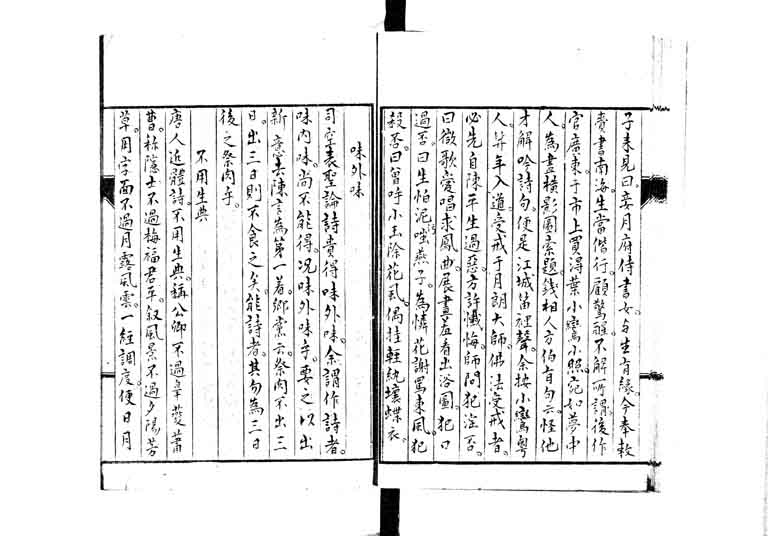 子來見曰妾月府侍書女与生有緣今奉敕
賚書南海生當偕行顧驚醒不解所謂後作
官廣東于市上買得葉小鸞小照宛如夢中
人為畫橫影圖索題錢相人方伯有句云怪他
才解吟詩句便是江城笛裡聲余按小鸞粵
人笄年入道受戒于月朗大師佛法受戒者
必先自陳平生過惡方許懺悔師問犯淫否
曰欲歌愛唱求鳳曲展畫羞看出浴圖犯口
過否曰生怕泥嗤燕子為憐花謝罵東風犯
殺否曰曾呼小玉除花虱偶挂輕紈壞蝶衣
味外味
司空表聖論詩貴得味外味余謂作詩者
味內味尚不能得况味外味乎要之以出
新意去陳言為第一着鄉黨云祭肉不出三
日出三日則不食之矣能詩者其勿為三日
後之祭肉乎
不用生典
唐人近體詩不用生典稱公卿不過皋夔蕭
曹稱隱士不過梅福君平叙風景不過夕陽芳
草用字面不過月露風雲一經調度便日月